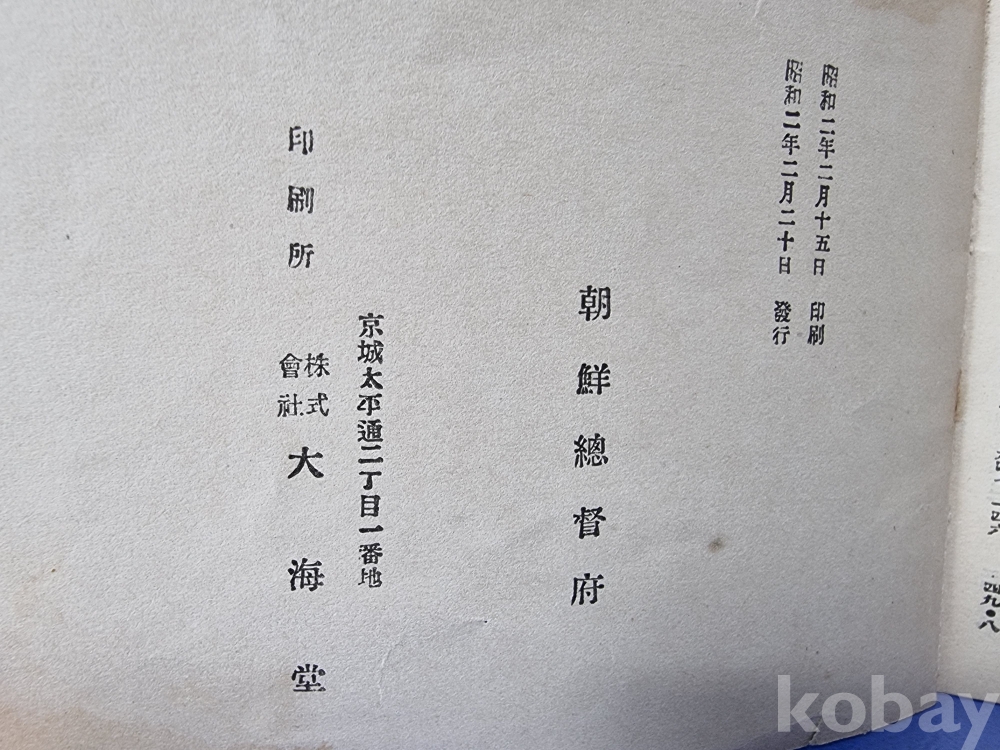 昭和二年二月十五日 印刷
昭和二年二月二十日 發行
朝鮮總督府
京城太平通二丁目一番地
印刷所 株式會社 大海堂
kobay